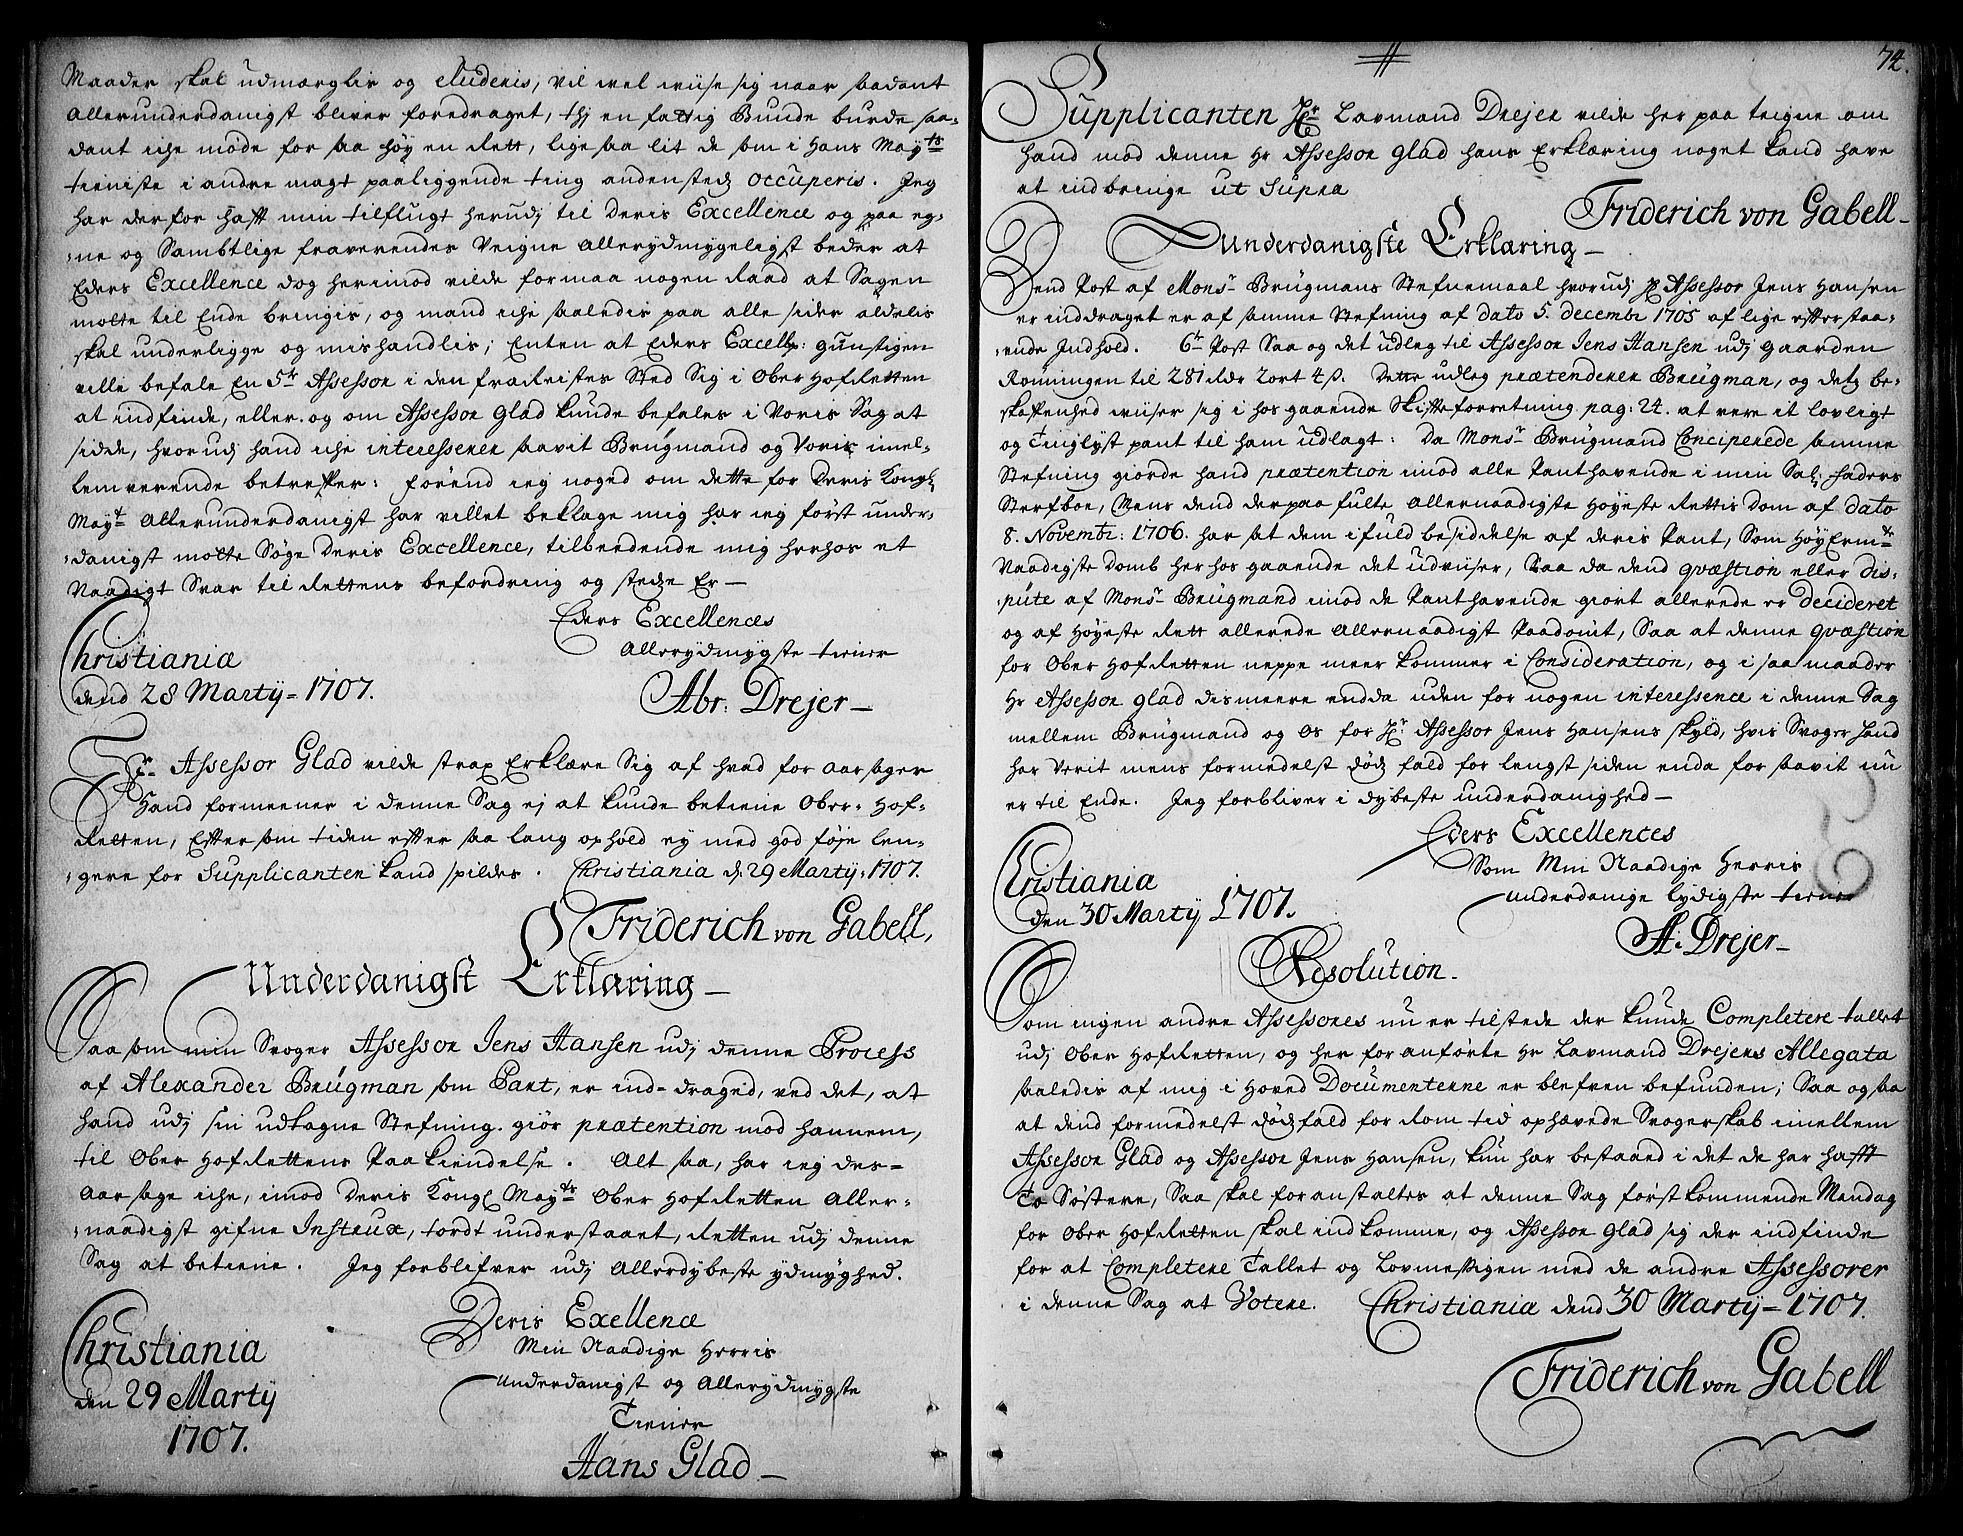 Maader skal udmærglis og eluderis, vil vel wiise sig naar saadant
allerunderdanigst bliver foredraget, thj en fattig Bunde burde saa-
dant iche møde for saa høy en Rett, lige saa lit de som i Hans Mayts
tieniste i andre magt paaliggende ting andensteds occuperis. Jeg
har derfor hafft min tilflugt herudj til Deris Excellence og paa eg-
ne og Sambtlige fraverendes Veigne allerydmygeligst beder at
Eders Excellence dog herimod vilde formaa nogen Raad at Sagen
motte til Ende bringis, og mand iche saaledis paa alle sider aldelis
skal underligge og mishandlis; Enten at Eders Excell: gunstigen
ville befale En 5te Assessor i den fraReistes Sted Sig i Ober Hofretten
at indfinde, eller og om Assessor Glad kunde befales i Voris Sag at
sidde, hvorudj hand iche interesserer saavit Brugmand og Voris imel-
lem verende betreffer: forend ieg noged om dette for Deris Kongl
Mayt Allerunderdanigst har villet beklage mig har ieg først under-
danigst motte Søge Deris Excellence, tilbeedende mig herhos et
Naadigt Svar til Rettens befordring og stedse Er
Eders Excellences
Allerydmygste tiener
Christiania
dend 28 Martij 1707.
Abr: Drejer
Hr. Assessor Glad vilde strax Erklære Sig af hvad for aarsager
Hand formeener i denne Sag ej at kunde betiene Ober-Hof-
Retten, Efftersom tiden effter saa lang ophold ey med god føje len-
gere for Supplicanten kand spildes. Christiania d. 29 Martij 1707.
Friderich von Gabell,
Underdanigst Erklaring
Saasom min Svoger Assessor Jens Hansen udj denne Process
af Alexander Brugman som Part, er ind-draged, ved det, at
hand udj sin udtagne Stefning giør prætention mod hannem,
til Ober HofRettens Paakiendelse. Alt saa, har ieg des-
aarsage iche, imod Deris Kongl Mayts Ober HofRetten Aller-
naadigst gifne Instrux, tordt understaaet, Retten udj denne
Sag at betiene. Jeg forblifver udj Allerdybeste ydmyghed.
Deris Exellence
Min Naadige Herris
Underdanigst og Allerydmygste
Tiener
Christiania
den 29 Martij
1707.
Hans Glad
74.
Supplicanten Hr Lavmand Drejer vilde her paa teigne om
hand mod denne Hr Assessor Glad hans Erklæring noget kand have
at indbringe ut Supra
Friderich von Gabell
Underdanigste Erklaring
Dend Post af Monsr Brugmans Stefnemaal hvorudj Hr Assessor Jens Hansen
er inddraget er af samme Stefning af dato 5. decembr 1705 af lige efterstaa-
ende Indhold. 6te Post Saa og det udleg til Assessor Jens Hansen udj gaarden
Rønningen til 281 Rdr 2 ort 4 s. Dette udleg prætenderer Brugman, og dets be-
skaffenhed wiiser sig i hosgaaende Skifteforretning pag: 24. at vere it lovligt
og Tinglyst pant til ham udlagt: Da Monsr Brugmand Conciperede samme
Stefning giorde hand prætention imod alle Panthavende i min Sal: Faders
Sterfboe, Mens dend derpaa fulte Allernaadigste Høyeste Rettis Dom af dato
8. Novembr: 1706. har sat dem i fuld besiddelse af deris Pant, Som HøyErmte
Naadigste Domb herhos gaaende det udviiser, Saa da dend qvæstion eller dis-
pute af Monsr Brugmand imod de Panthavende giort allerede er decideret
og af Høyeste Rett allerede Allernaadigst Paadømt, Saa at denne qvæstion
for Ober HofRetten neppe meer kommer i Consideration, og i saa maader
Hr Assessor Glad dismeere endda uden for nogen interessence i denne Sag
mellem Brugmand og os for Hr Assessor Jens Hansens skyld, hvis Svoger hand
har verit mens formedelst død fald for lengst siden enda for saavit nu
er til Ende. Jeg forbliver i dybeste underdanighed
Eders Excellences
Som Min Naadige Herris
underdanige lydigste tiener
Christiania
den 30 Martij 1707.
A: Drejer
Resolution.
Som ingen andre Assessores nu er tilstede der kunde Completere tallet
udj Ober HofRetten, og her foranførte Hr Lavmand Drejers Allegata
saaledis af mig i Hoved Documenterne er blefven befunden; Saa og saa
at dend formedelst dødfald for Rom tid ophævede Svogerskab imellem
Assessor Glad og Assessor Jens Hansen, kun har bestaaed i det de har hafft
To Søstere, Saa skal foranstaltes at denne Sag førstkommende Mandag
for Ober HofRetten skal indkomme, og Assessor Glad sig der indfinde
for at Completere Tallet og Lovmessigen med de andre Assessorer
i denne Sag at Votere. Christiania dend 30 Martij 1707.
Friderich von Gabell